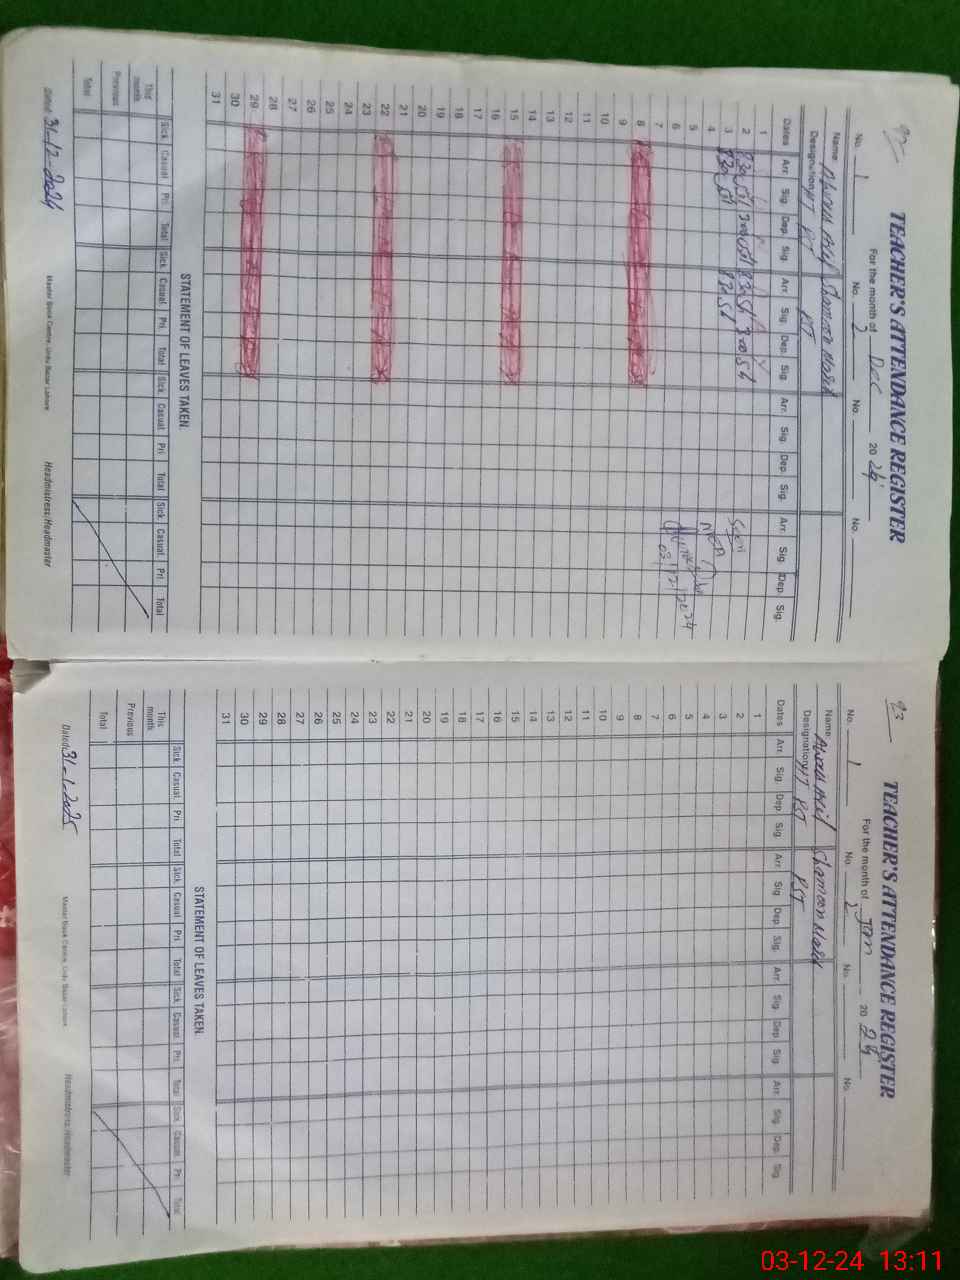 92
TEACHER'S ATTENDANCE REGISTER
For the month of Dec 2024
No. 1 No. 2 No. No.
Name: Shamoon
Designation HT PST PST
Dates Arr. Sig. Dep. Sig. Arr. Sig. Dep. Sig. Arr. Sig. Dep. Sig. Arr. Sig. Dep. Sig.
1
2 830 300 830 300
3 830 830
4
5
6
7
8
9
10
11
12
13
14
15
16
17
18
19
20
21
22
23
24
25
26
27
28
29
30
31
Seen
MEA
03/12/2024
STATEMENT OF LEAVES TAKEN
Sick Casual Pri Total Sick Casual Pri Total Sick Casual Pri Total Sick Casual Pri Total
This month
Previous
Total
Dated 31-12-2024 Master Book Centre, Urdu Bazar Lahore Headmistress/Headmaster
93
TEACHER'S ATTENDANCE REGISTER
For the month of Jan 20
No. 1 No. 2 No. No.
Name: Shamoon
Designation HT PST PST
Dates Arr. Sig. Dep. Sig. Arr. Sig. Dep. Sig. Arr. Sig. Dep. Sig. Arr. Sig. Dep. Sig.
1
2
3
4
5
6
7
8
9
10
11
12
13
14
15
16
17
18
19
20
21
22
23
24
25
26
27
28
29
30
31
STATEMENT OF LEAVES TAKEN
Sick Casual Pri Total Sick Casual Pri Total Sick Casual Pri Total Sick Casual Pri Total
This month
Previous
Total
Dated: 31-1-2025 Master Book Centre, Urdu Bazar Lahore Headmistress/Headmaster
03-12-24 13:11